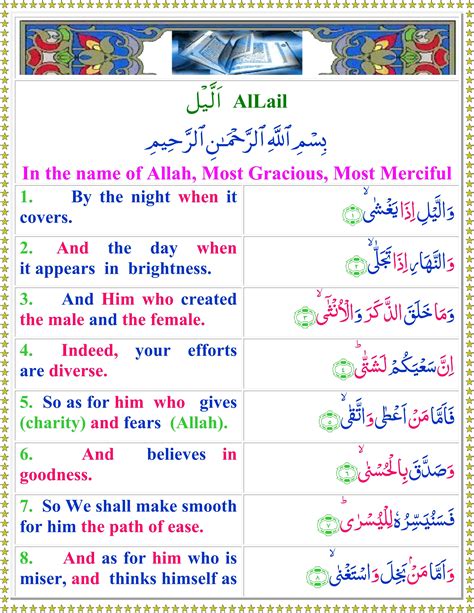 اَلَّيْل AlLail
بِسْمِ اللَّهِ الرَّحْمَٰنِ الرَّحِيمِ
In the name of Allah, Most Gracious, Most Merciful
1. By the night when it
covers.
وَالَّيْلِ اِذَا يَغْشٰىۙ ۝١
2. And the day when
it appears in brightness.
وَالنَّهَارِ اِذَا تَجَلّٰىۙ ۝٢
3. And Him who created
the male and the female.
وَمَا خَلَقَ الذَّكَرَ وَالْاُنْثٰٓىۙ ۝٣
4. Indeed, your efforts
are diverse.
اِنَّ سَعْيَكُمْ لَشَتّٰىؕ ۝٤
5. So as for him who gives
(charity) and fears (Allah).
فَاَمَّا مَنْ اَعْطٰى وَاتَّقٰىۙ ۝٥
6. And believes in
goodness.
وَصَدَّقَ بِالْحُسْنٰىۙ ۝٦
7. So We shall make smooth
for him the path of ease.
فَسَنُيَسِّرُهٗ لِلْيُسْرٰىؕ ۝٧
8. And as for him who is
miser, and thinks himself as
وَاَمَّا مَنْۢ بَخِلَ وَاسْتَغْنٰىۙ ۝٨